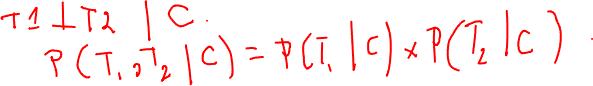 T1 ⊥ T2 | C.
P(T₁, T₂ | C) = P(T₁ | C) × P(T₂ | C)